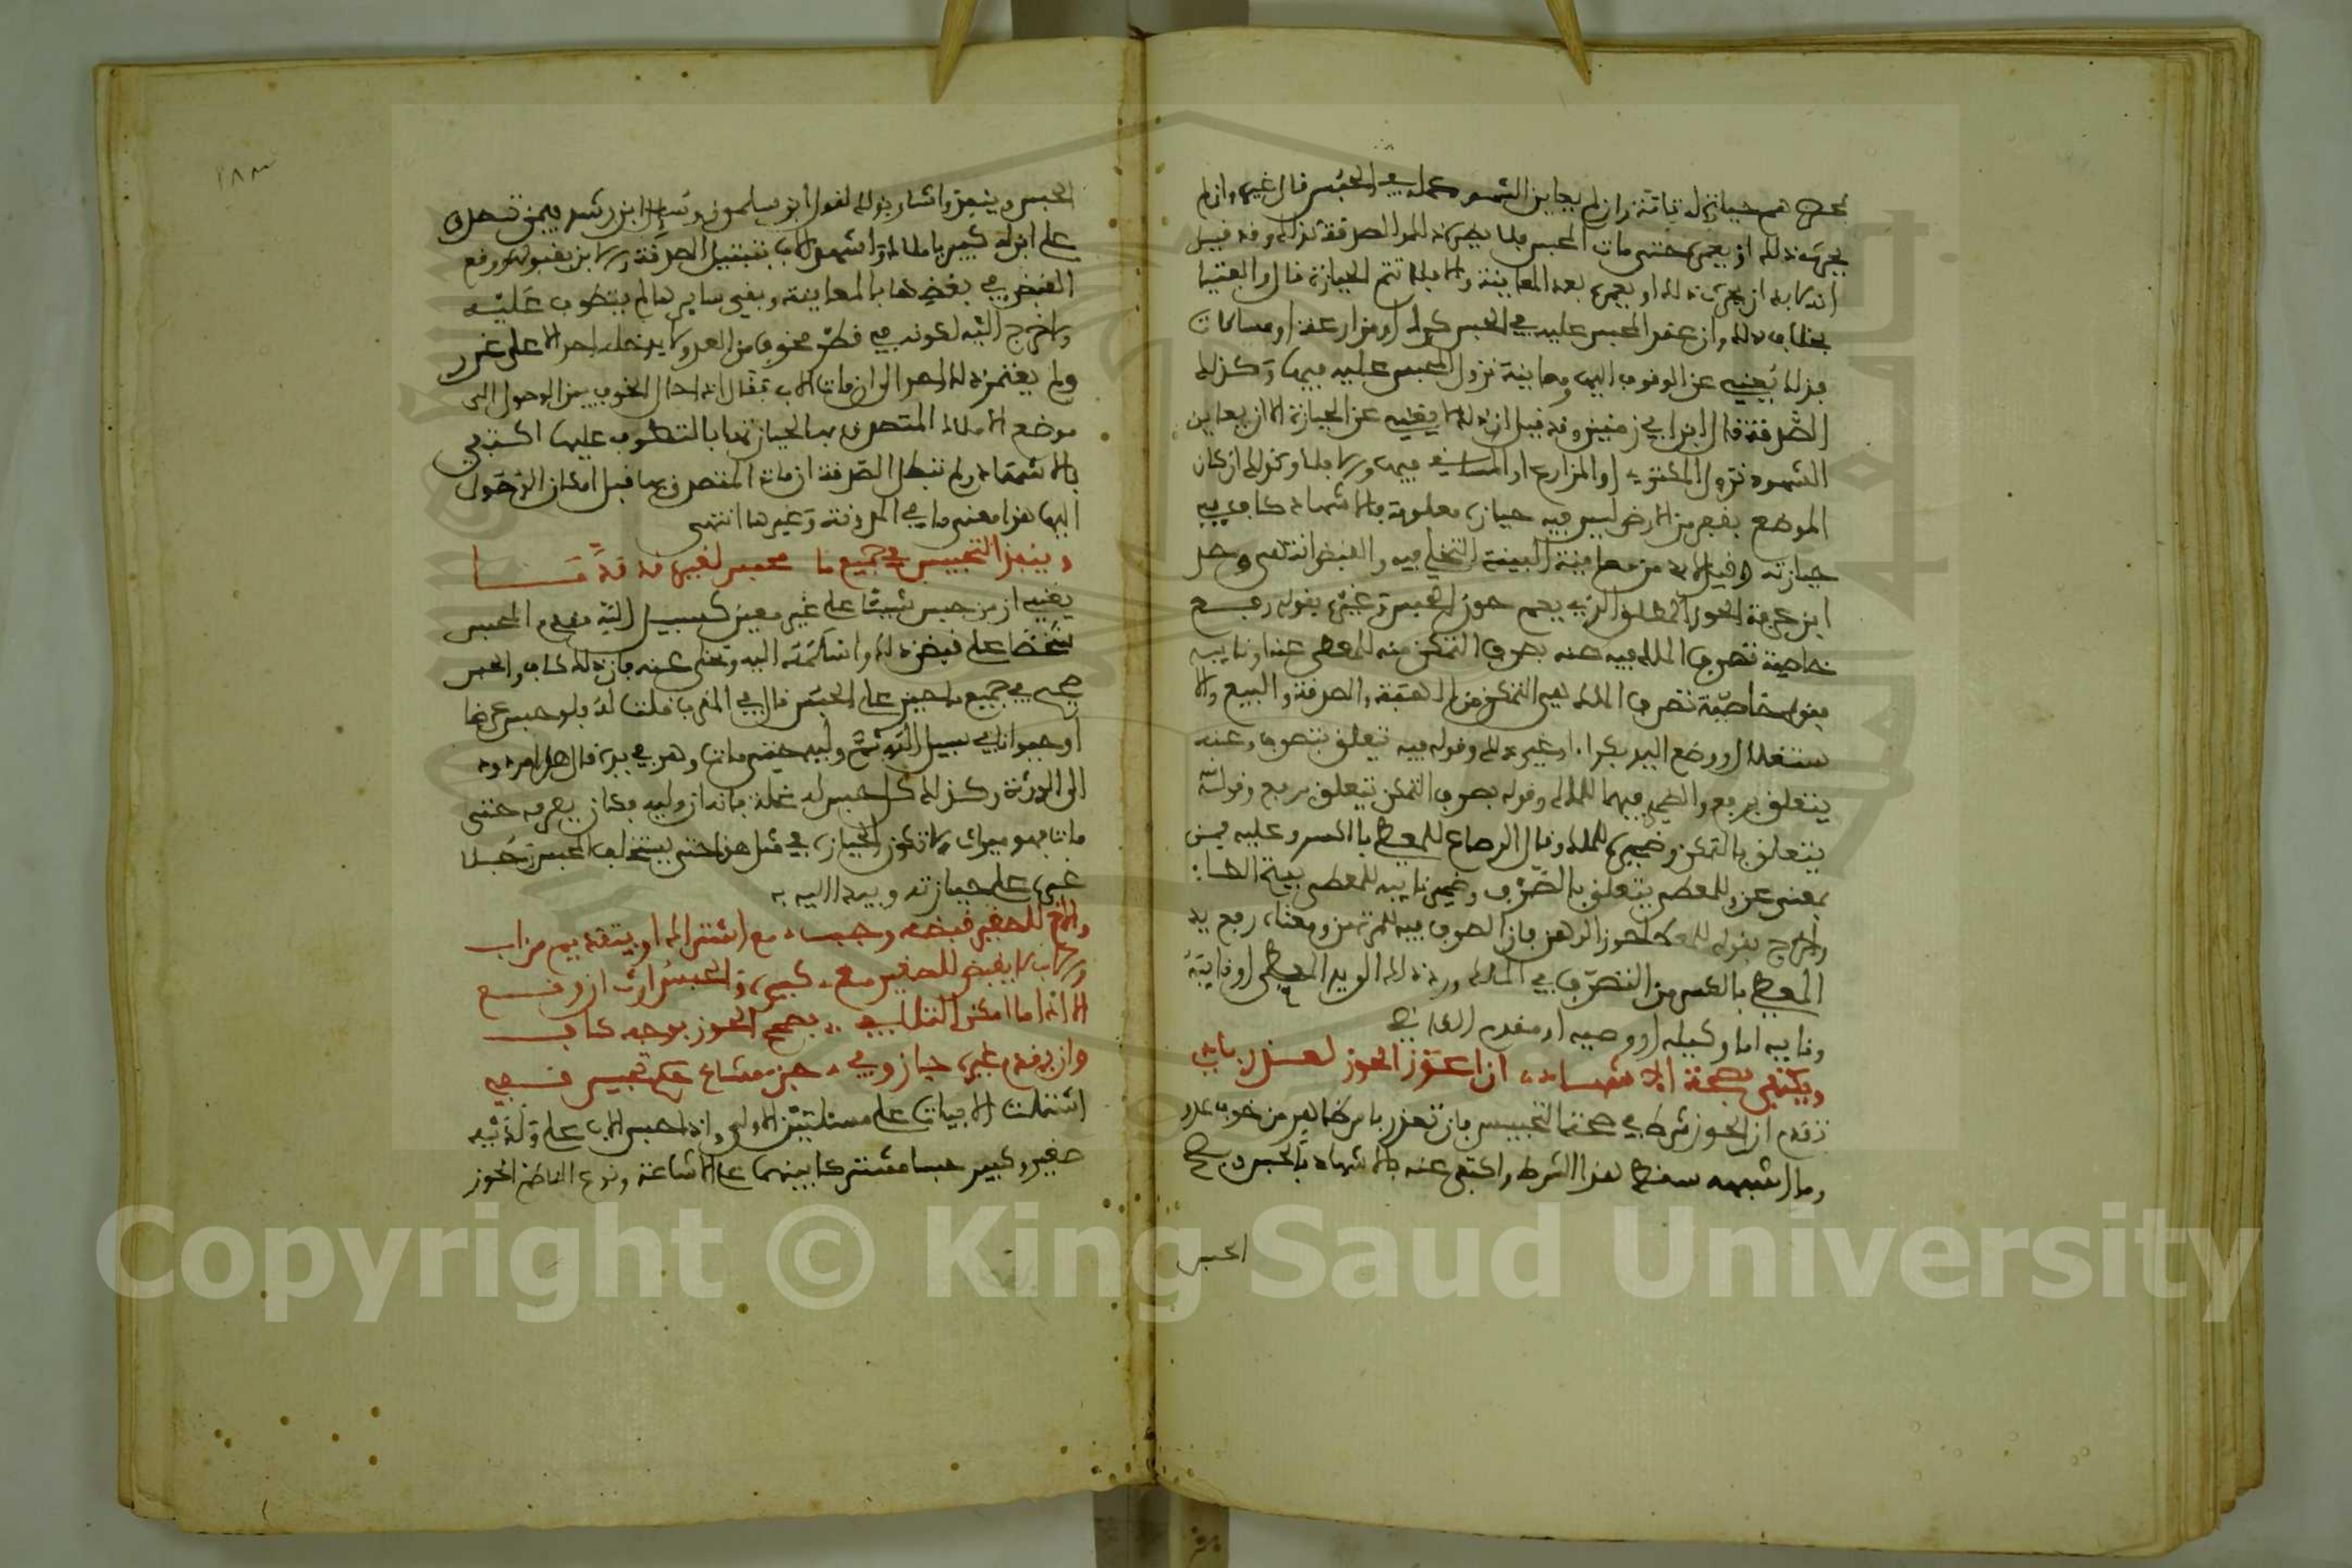 يجري ذلك او يعمر حتى مات المحبس
انه لا بد ان يجري ذلك او يعمر بعد المعاينة والا فلا تتم الحيازة قال والفتيا
بخلاف ذلك وان عقد المحبس عليه في الحبس كراء او مزارعة او مساقات
فذلك يغني عن الوقوف اليها ومعاينة نزول المحبس عليه فيها وكذلك
الصدقة قال ابن ابي زمنين وقد قيل ان ذلك لا يغني عن الحيازة الا ان يعاين
الشهود نزول المكتري او المزارع او المساقي فيها والا فلا وكذلك ان كان
الموضع بفحص من الارض ليس فيه حيازة معلومة فالاشهاد كاف في
حيازته وقيل لا بد من معاينة البينة للتخلي فيه والقبض انتهى وحد
ابن عرفة الحوز المطلق الذي يعم حوز الحبس وغيره بقوله رفع
خاصية تصرف الملك فيه عنه بصرف التمكن منه للمعطى عنه او نايبه
فقوله خاصية تصرف الملك هي التمكن من الهبة والصدقة والبيع والا
ستغلال ووضع اليد بكراء او غير ذلك وقوله فيه يتعلق بتصرف وعنه
يتعلق برفع والضمير فيهما للملك وقوله بصرف التمكن يتعلق برفع وقوله منه
يتعلق بالتمكن وضميره للملك وقال الرصاع للمعطي بالكسر وعليه فمن
بمعنى عن وللمعطى يتعلق بالصرف وضمير نايبه للمعطى بفتح الطاء:
واخرج بقوله للمعطى حوز الرهن فان الصرف فيه للمرتهن ومعناه رفع يد
المعطي بالكسر من التصرف في الملك ورد ذلك الى يد المعطى او نايبه
ونايبه اما وكيله او وصيه او مقدم القاضي
ويكتفى بصحة الاشهاد ان اعوز الحوز لعذر باد
تقدم ان الحوز شرط في صحة التحبيس فان تعذر بامر ظاهر من خوف عدو
وما اشبهه سقط هذا الشرط واكتفي عنه بالاشهاد بالحبس ويصح
الحبس
١٨٣
الحبس وينفذ واشار بذلك لقول ابن سلمون وسئل ابن رشد فيمن تصدق
على ابن له كبير باملاك واشهد الاب بتبتيل الصدقة والابن بقبولها ووقع
القبض في بعضها بالمعاينة وبقي سايرها لم يتطوف عليه
ولا خرج اليه لكونه في قطر مخوف من العدو لا يدخله احد الا على غرر
ولم يعتمر ذلك احد الى ان مات الاب فقال اذا حال الخوف بين الوصول الى
موضع الاملاك المتصدق بها لحيازتها بالتطوف عليها اكتفي
بالاشهاد ولم تبطل الصدقة ان مات المتصدق بها قبل امكان الوصول
اليها هذا معنى ما في المدونة وغيرها انتهى
وينفذ التحبيس في جميع ما محبس لقبضه قد قدما
يعني ان من حبس شيئا على غير معين كسبيل الله فقدم المحبس
شخصا على قبض ذلك واسلمه اليه وتخلى عنه فان ذلك كاف والحبس
صحيح في جميع ما حبس على الحبس قال في المقرب قلت له فلو حبس عرضا
او حيوانا في سبيل الله ثم وليه حتى مات وهو في يده قال هذا مردود
الى الورثة وكذلك كل حبس له غلة فانه ان وليه وكان يصرفه حتى
مات فهو ميراث ولا تكون الحيازة في مثل هذا حتى يستخلف المحبس رجلا
غيره على حيازته ويبداليه به
والاخ للصغير قبضه وجب مع اشتراك او بتقديم من اب
والاب لا يقبض للصغير مع كبيره والحبس ارث ان وقع
الا اذا ما امكن التلافي وصحح الحوز بوجه كاف
وان يقدم غيره جاز وفي جزء مشاع حكم تحبيس قفي
اشتملت الابيات على مسئلتين الاولى واذا حبس الاب على ولديه
صغير وكبير حبسا مشتركا بينهما على الاشاعة